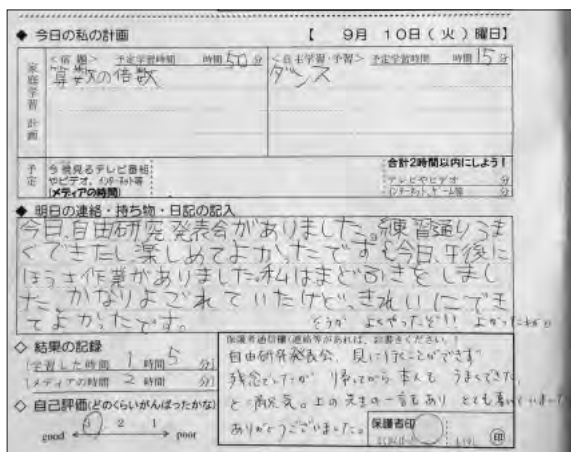 ◆ 今日の私の計画 【 9月 10日（火）曜日】
家庭学習計画
<宿題> 予定学習時間 時間 50 分
算数の倍数
<自主学習・予習> 予定学習時間 時間 15 分
ダンス
予定
今日見るテレビ番組
やビデオ、インターネット等
(メディアの時間)
合計2時間以内にしよう！
テレビやビデオ 分
インターネット、ゲーム等 分
◆ 明日の連絡・持ち物・日記の記入
今日、自由研究発表会がありました。練習通りうま
くできたし楽しめてよかったです。今日、午後に
ほうし作業がありました。私はまどふきをしまし
た。かなりよごれていたけど、きれいにできま
てよかったです。
よくやったぞ!!
◇ 結果の記録
[学習した時間 1 時間 5 分]
[メディアの時間 2 時間 分]
◇ 自己評価(どのくらいがんばったかな)
3 2 1
good poor
保護者通信欄(連絡等があれば、お書きください。)
自由研究発表会、見に行くことができず
残念でしたが 帰ってから 本人も うまくできた、
と 満足気。上の先生の一言もあり とても
ありがとうございました。
保護者印
印